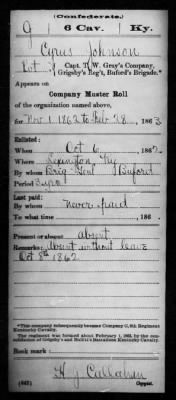 (Confederate.)
J 6 Cav. Ky.
Cyrus Johnson
Pvt, Capt. T. W. Gray's Company,
Grigsby's Reg't, Buford's Brigade.*
Appears on
Company Muster Roll
of the organization named above,
for Nov 1 1862 to Feb 28, 1863
Enlisted:
When Oct 6, 1862
Where Lexington, Ky
By whom Brig Genl Buford
Period 3 yrs
Last paid:
By whom never paid
To what time , 186 .
Present or absent absent
Remarks: Absent without leave
Oct 8th 1862
*This company subsequently became Company G, 6th Regiment
Kentucky Cavalry.
The regiment was formed about February 1, 1863, by the con-
solidation of Grigsby's and Battalions Kentucky Cavalry.
Book mark:
(642) H. J. Callahan
Copyist.